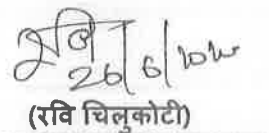 रवि
26/6/2020
(रवि चिलुकोटी)